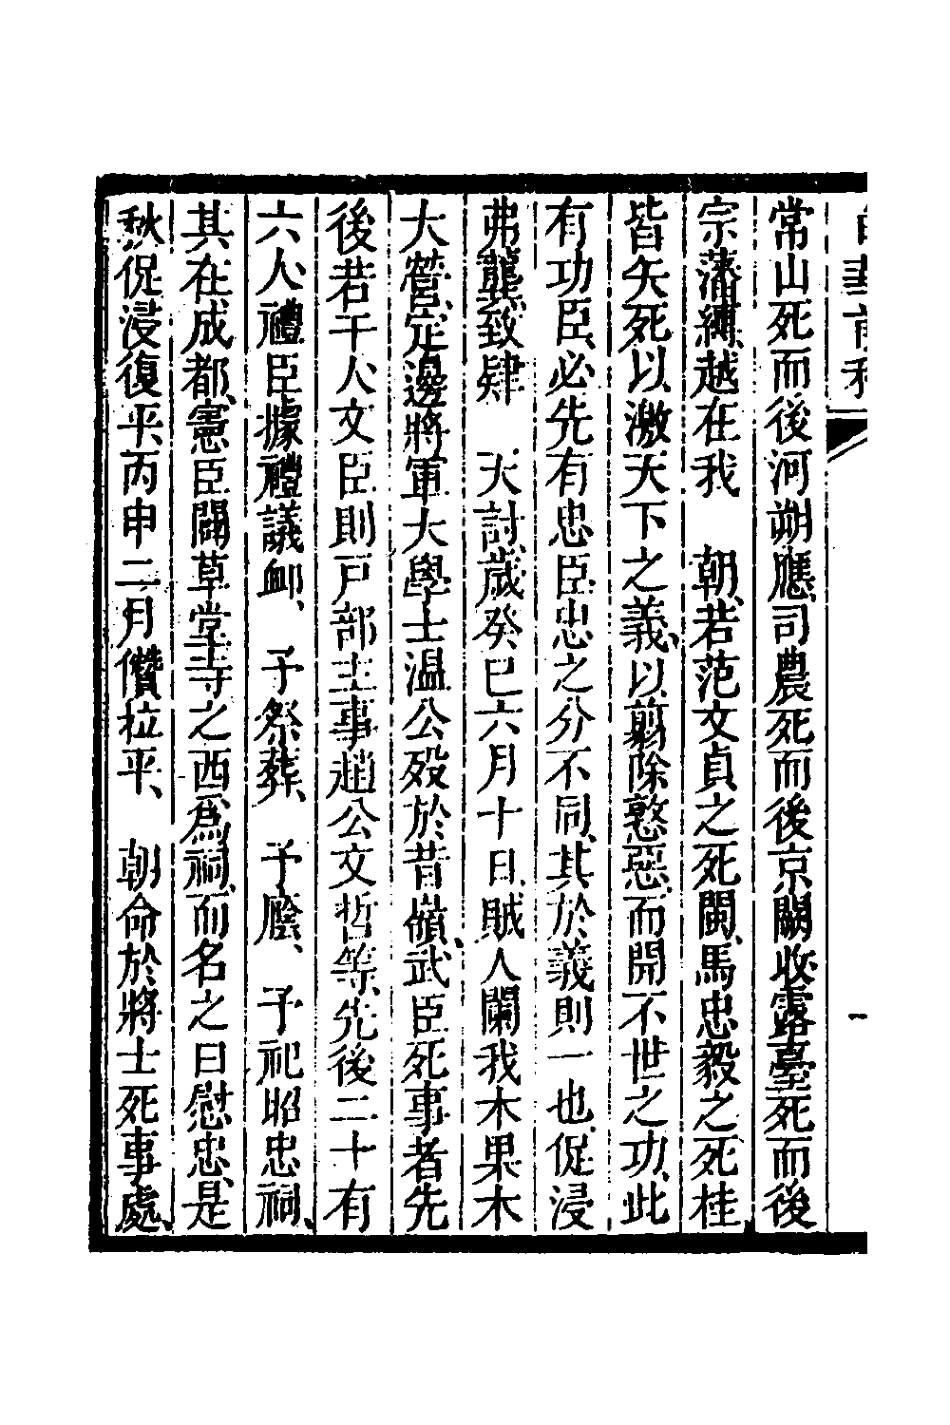 常山死而後河朔應司農死而後京關收露臺死而後
宗藩縛越在我　朝若范文貞之死闖馬忠毅之死桂
皆矢死以激天下之義以翦除憝惡而開不世之功此
有功臣必先有忠臣忠之分不同其於義則一也促浸
弗龔致肆　天討歲癸巳六月十日賊人闌我木果木
大營定邊將軍大學士温公殁於昔嶺武臣死事者先
後若干人文臣則戸部主事趙公文哲等先後二十有
六人禮臣據禮議卹　予祭葬　予廕　予祀昭忠祠
其在成都憲臣闢草堂寺之西爲祠而名之曰慰忠是
秋促浸復平丙申二月儧拉平　朝命於將士死事處